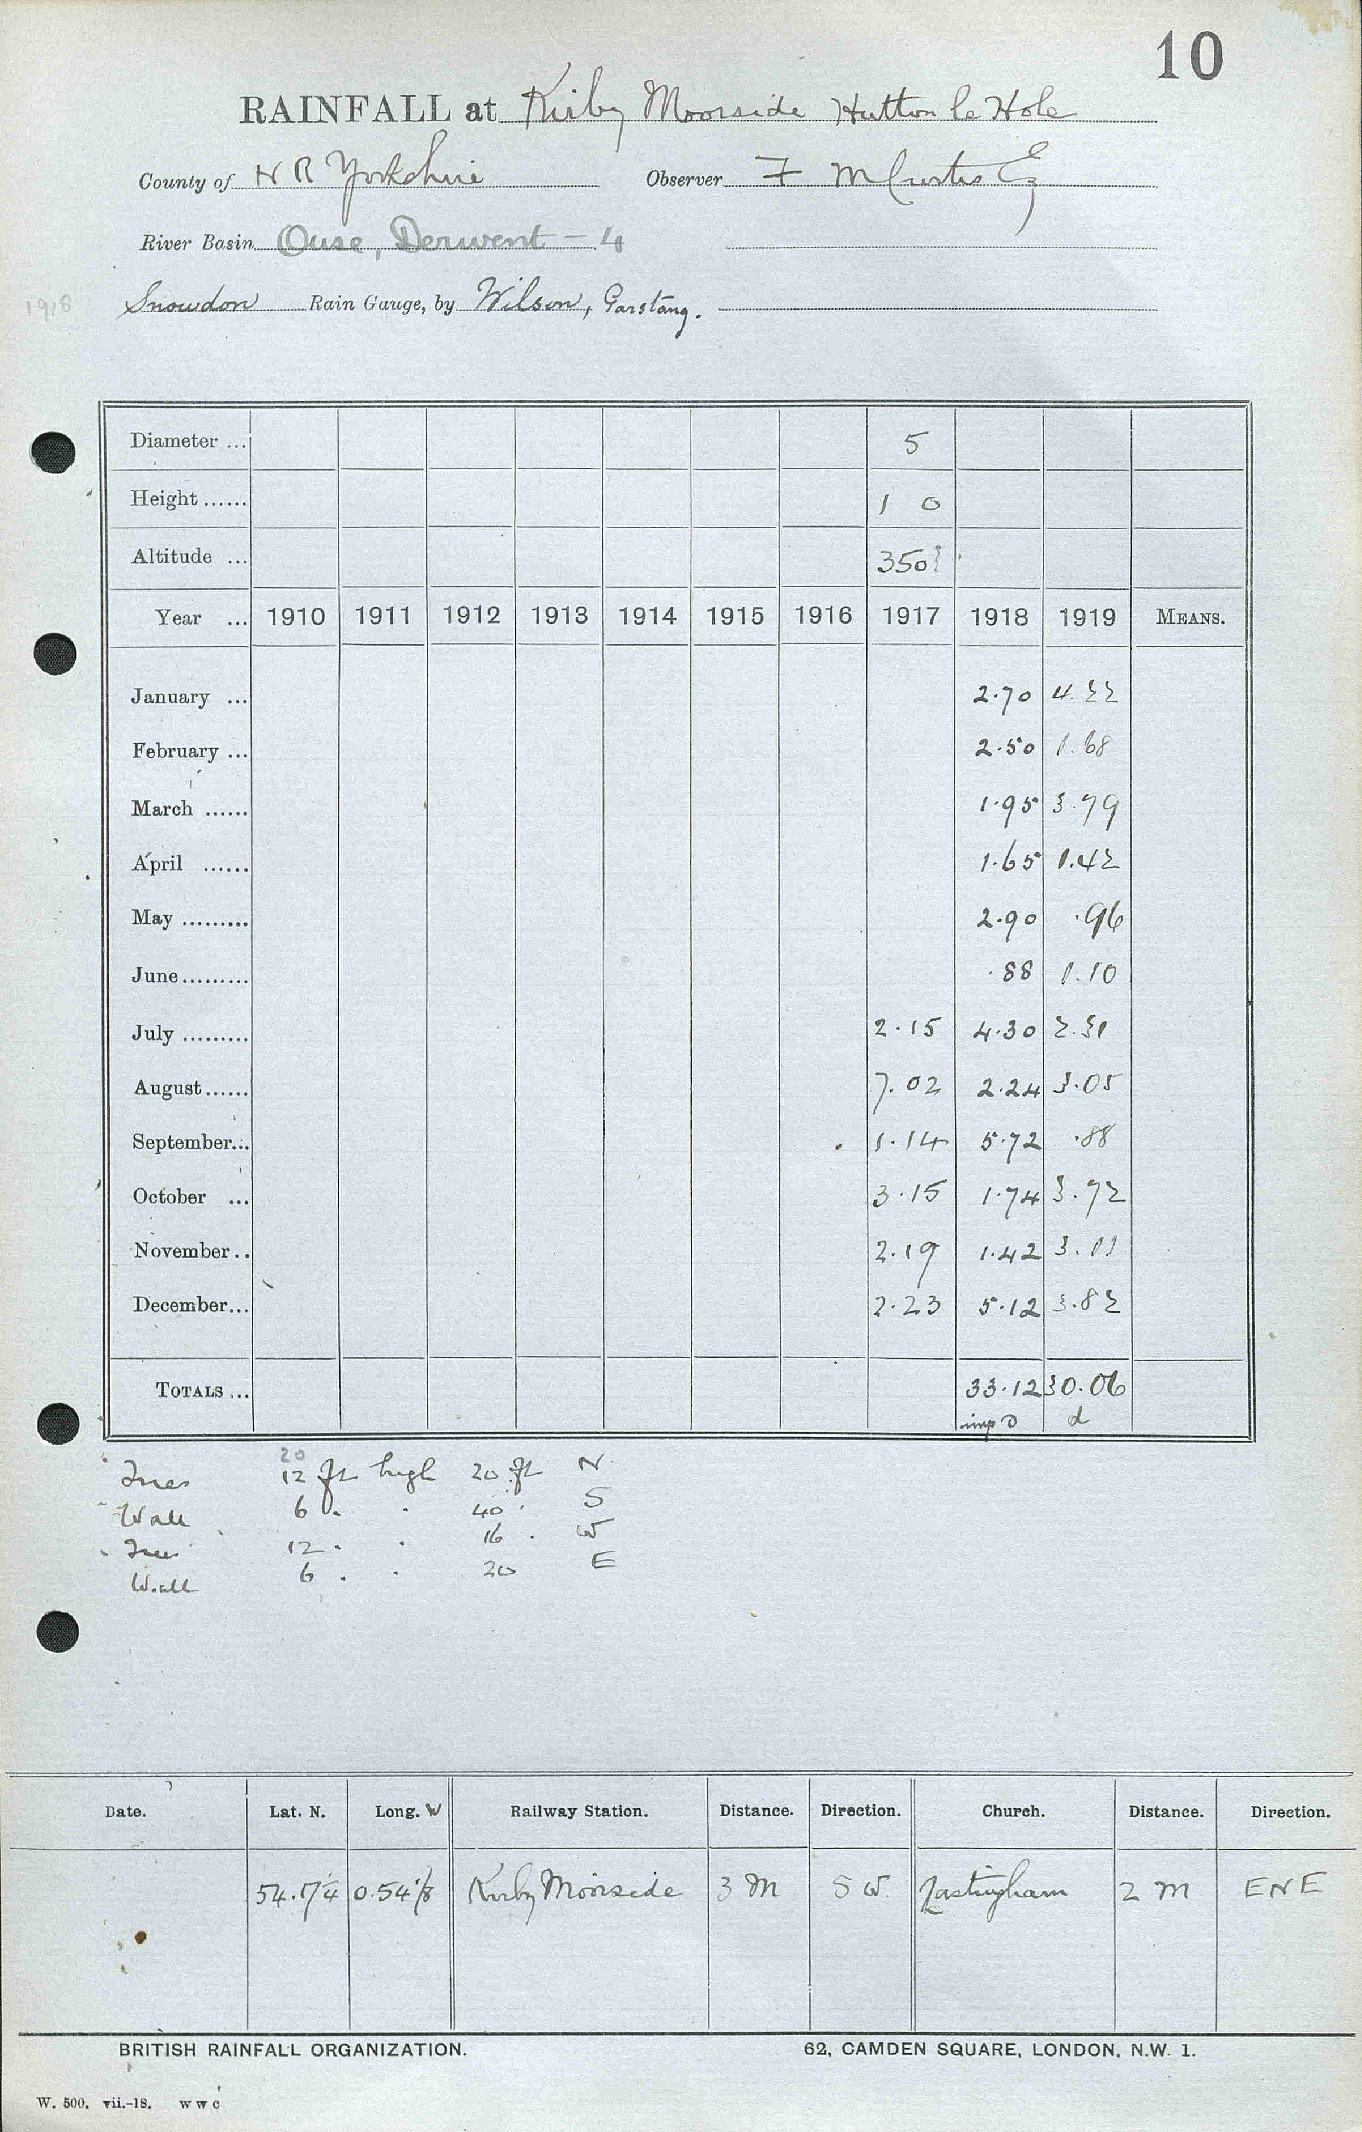 10
RAINFALL at Kirby Moorside Hutton le Hole
County of N R Yorkshire Observer F M Curtis Esq
River Basin Ouse, Derwent - 4
1918 Snowdon Rain Gauge, by Wilson, Garstang.
Diameter ... 5
Height ...... 1 0
Altitude ... 350
Year ... 1910 1911 1912 1913 1914 1915 1916 1917 1918 1919 MEANS.
January ... 2.70 4.22
February ... 2.50 1.68
March ...... 1.95 3.79
April ...... 1.65 1.42
May ......... 2.90 .96
June ......... .88 1.10
July ......... 2.15 4.30 2.31
August ...... 7.02 2.24 3.05
September... 1.14 5.72 .88
October ... 3.15 1.74 3.72
November .. 2.19 1.42 3.11
December... 2.23 5.12 3.82
TOTALS ... 33.12 30.06
d
20
Trees 12 ft high 20 ft N
Wall 6 " " 40 " S
Tree 12 " " 16 " W
Wall 6 " " 20 E
Date. Lat. N. Long. W Railway Station. Distance. Direction. Church. Distance. Direction.
54.17¼ 0.54⅞ Kirby Moorside 3 M S W. Lastingham 2 M ENE
BRITISH RAINFALL ORGANIZATION. 62, CAMDEN SQUARE, LONDON, N.W. 1.
W. 500. vii.-18. w w c